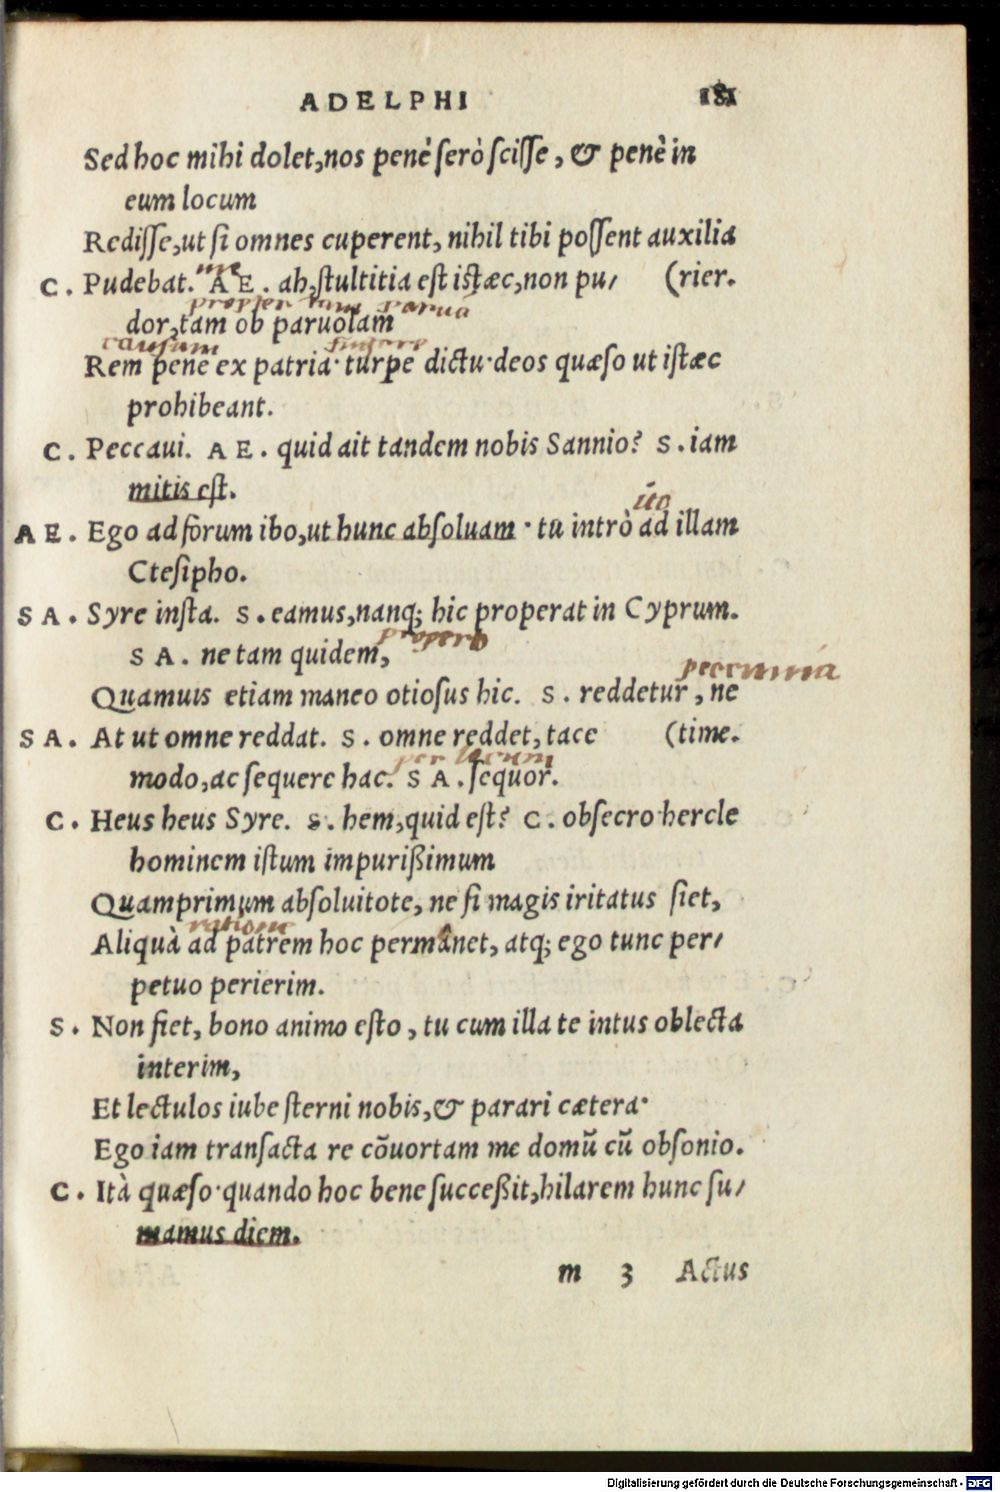 ADELPHI 181
Sed hoc mihi dolet, nos penè serò scisse, & penè in
eum locum
Redisse, ut si omnes cuperent, nihil tibi possent auxilia
me
C. Pudebat. AE. ah, stultitia est istæc, non pu/ (rier.
propter tam paruā
dor, tam ob paruolam
causam fugere
Rem pene ex patria· turpe dictu· deos quæso ut istæc
prohibeant.
C. Peccaui. AE. quid ait tandem nobis Sannio? S. iam
mitis est.
ito
AE. Ego ad forum ibo, ut hunc absoluam· tu intrò ad illam
Ctesipho.
SA. Syre insta. S. eamus, nanq; hic properat in Cyprum.
propero
SA. ne tam quidem,
peccunia
Quamuis etiam maneo otiosus hic. S. reddetur, ne
SA. At ut omne reddat. S. omne reddet, tace (time.
per locum
modo, ac sequere hac. SA. sequor.
C. Heus heus Syre. S. hem, quid est? C. obsecro hercle
hominem istum impurißimum
Quamprimum absoluitote, ne si magis iritatus siet,
ratione
Aliquà ad patrem hoc permanet, atq; ego tunc per/
petuo perierim.
S. Non fiet, bono animo esto, tu cum illa te intus oblecta
interim,
Et lectulos iube sterni nobis, & parari cætera·
Ego iam transacta re cõuortam me domũ cũ obsonio.
C. Ità quæso· quando hoc bene succeßit, hilarem hunc su/
mamus diem.
m 3 Actus
Digitalisierung gefördert durch die Deutsche Forschungsgemeinschaft - DFG